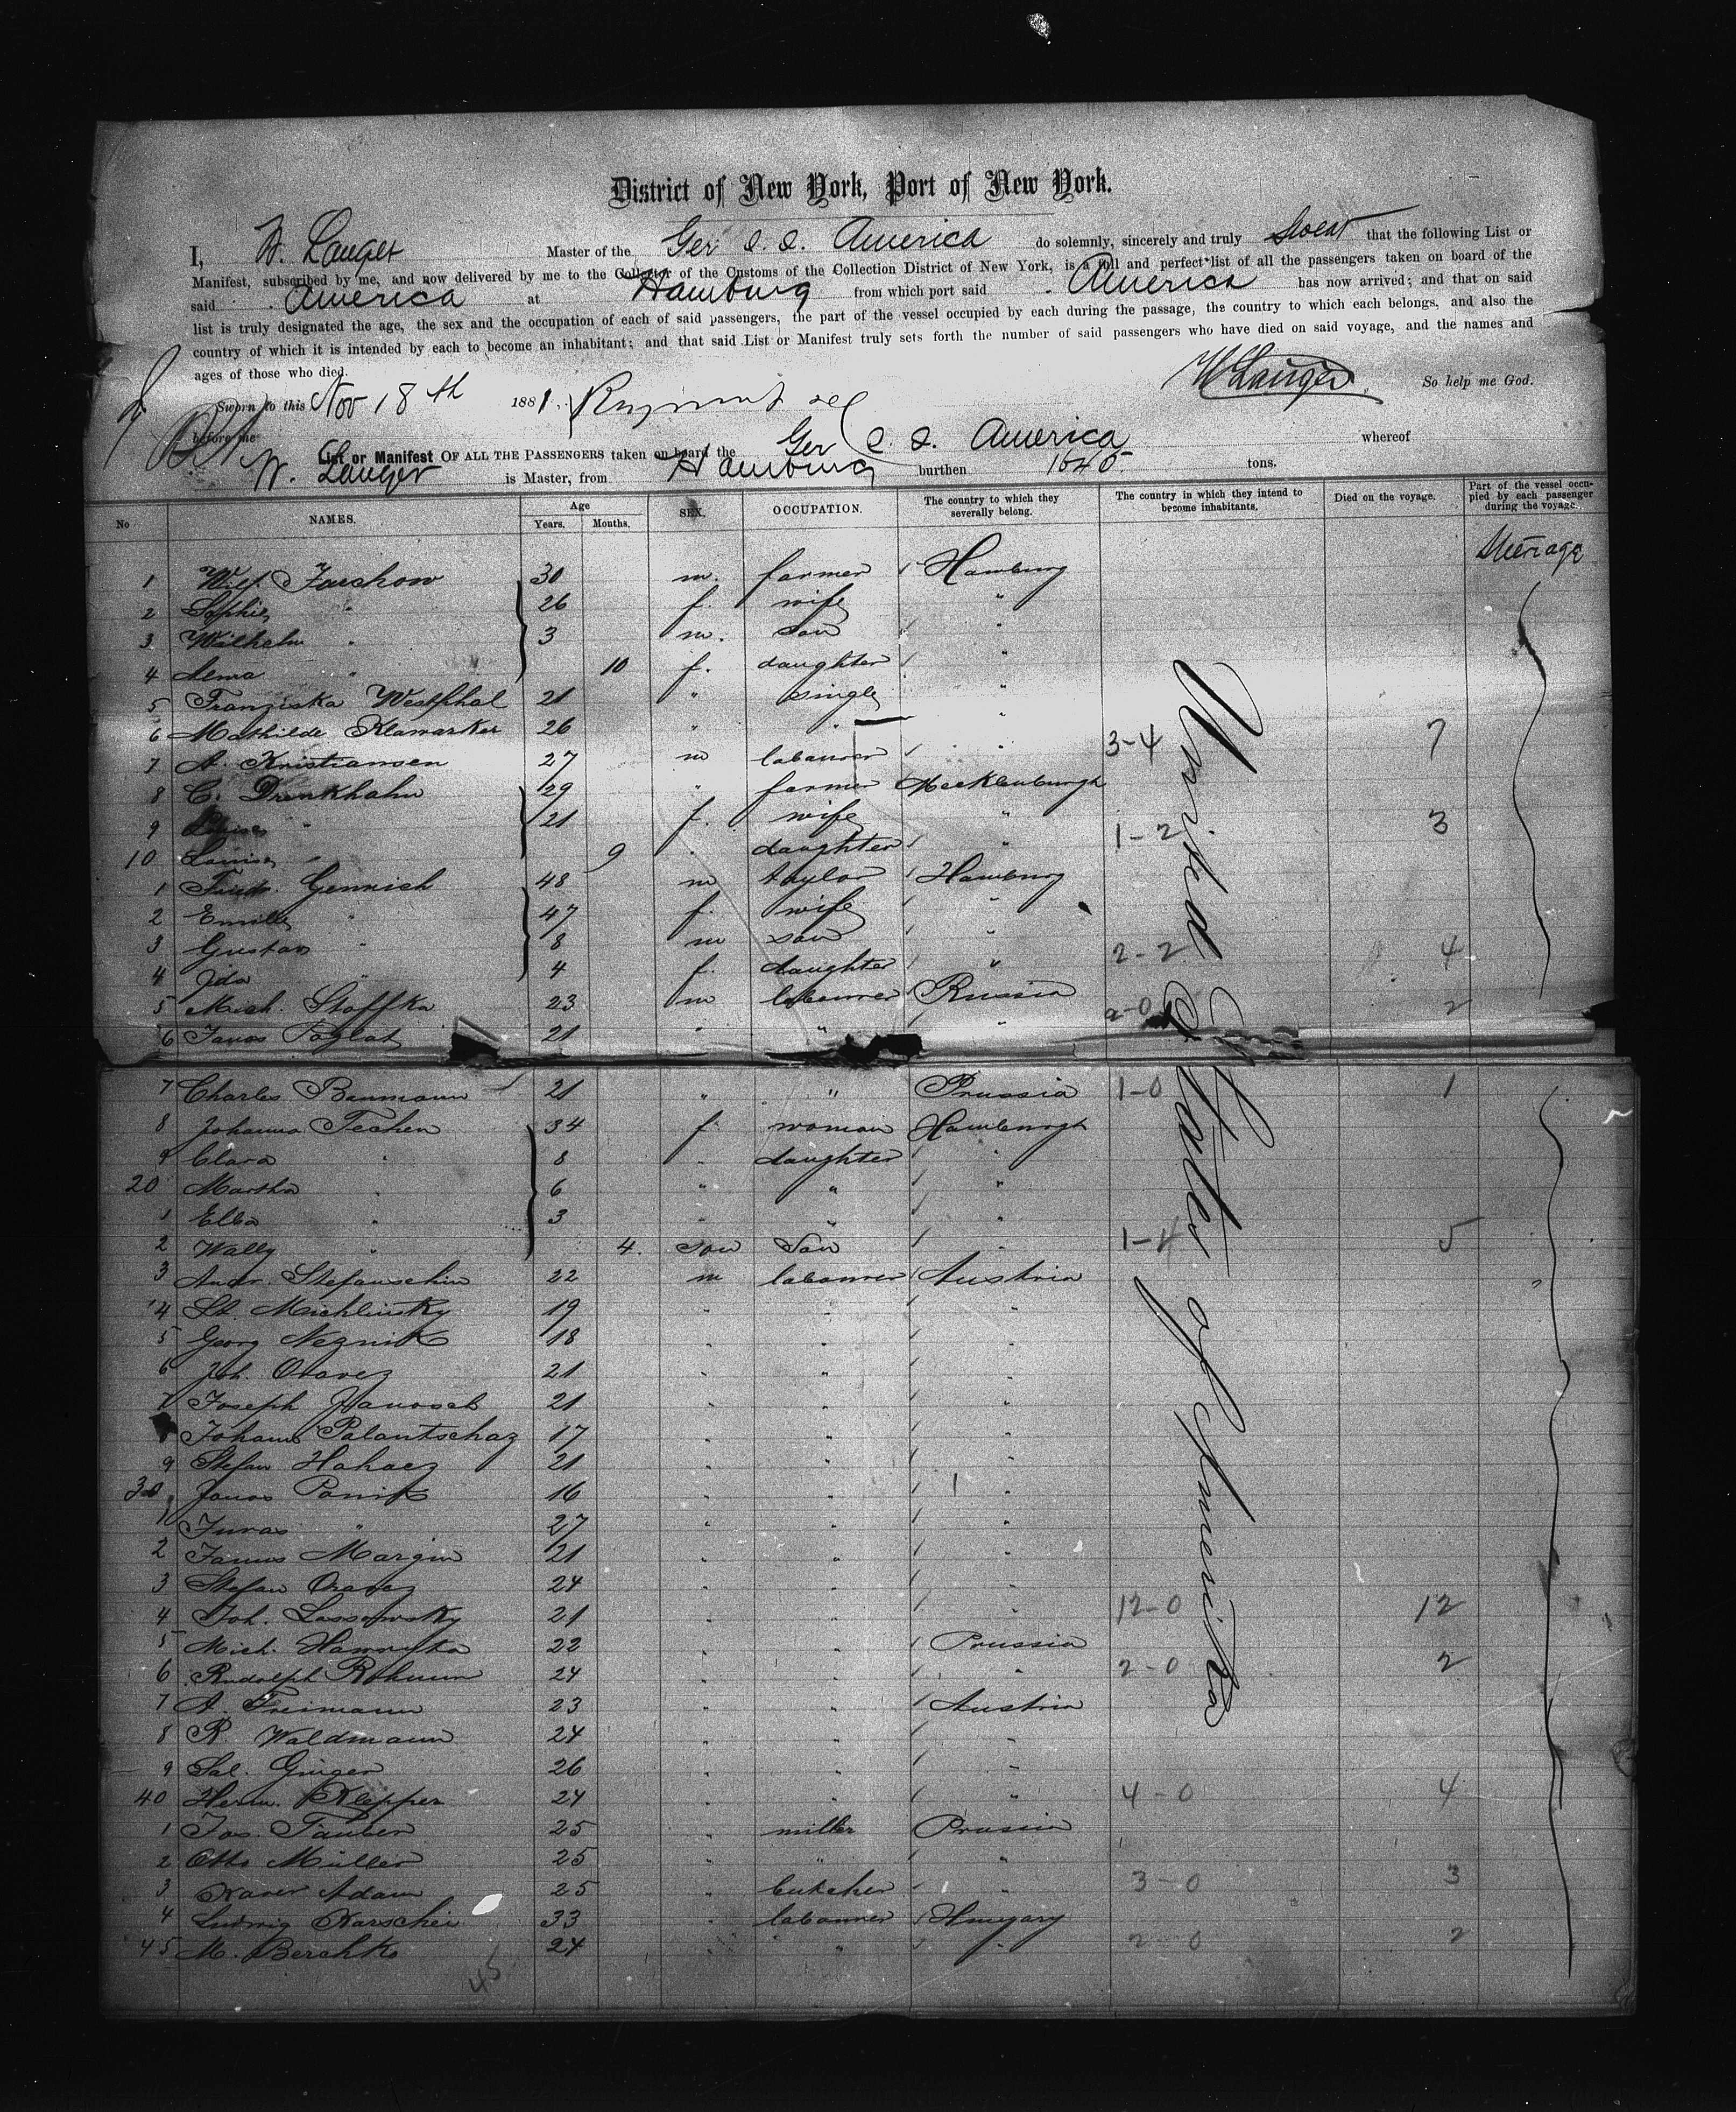 District of New York, Port of New York.
I, W. Langer Master of the Ger. S. S. America do solemnly, sincerely and truly swear that the following List or
Manifest, subscribed by me, and now delivered by me to the Collector of the Customs of the Collection District of New York, is a full and perfect list of all the passengers taken on board of the
said America at Hamburg from which port said America has now arrived; and that on said
list is truly designated the age, the sex and the occupation of each of said passengers, the part of the vessel occupied by each during the passage, the country to which each belongs, and also the
country of which it is intended by each to become an inhabitant; and that said List or Manifest truly sets forth the number of said passengers who have died on said voyage, and the names and
ages of those who died.
W Langer So help me God.
Sworn to this Nov 18th 1881.
before me
List or Manifest OF ALL THE PASSENGERS taken on board the Ger S. S. America whereof
W. Langer is Master, from Hamburg burthen 1645. tons.
No NAMES. Age Years. Months. SEX. OCCUPATION. The country to which they severally belong. The country in which they intend to become inhabitants. Died on the voyage. Part of the vessel occupied by each passenger during the voyage.
Steerage
United States of America
1 Wilh. Faschow 30 m. farmer Hamburg
2 Sophie " 26 f. wife "
3 Wilhelm " 3 m. son "
4 " 10 f. daughter "
5 Franziska Westphal 21 " single "
6 Mathilde 26 " " "
7 A. Kristiansen 27 m labourer " 3-4 7
8 C. Drenkhahn 29 " farmer Mecklenburgh
9 " 21 f. wife " 1-2 3
10 Louise " 9 " daughter "
1 Gennich 48 m taylor Hamburg
2 Emilie " 47 f. wife "
3 Gustav " 8 m son " 2-2 4
4 Ida " 4 f. daughter "
5 Mich. Stoffka 23 m labourer Russia 2-0 2
6 Janos Poglat 21 " " "
7 Charles Baumann 21 " " Prussia 1-0 1
8 Johanna Techen 34 f woman Hamburgh
9 Clara " 8 " daughter "
20 Martha " 6 " " "
1 Ella " 3 " " "
2 Wally " 4. son Son " 1-4 5
3 Andr. Stefanschin 22 m labourer Austria
4 St. Michlinsky 19 " " "
5 Georg Neznik 18 " " "
6 Joh. Oravez 21 " " "
7 Joseph Janosch 21 " " "
8 Johann Palantschaz 17 " " "
9 Stefan Hahaez 21 " " "
30 Janos Panik 16 " " "
1 Juras " 27 " " "
2 Janos Margin 21 " " "
3 Stefan Oravez 24 " " "
4 Joh. Lossowsky 21 " " " 12-0 12
5 Mich. 22 " " Prussia
6 Rudolph Rohmun 24 " " " 2-0 2
7 A. Freimann 23 " " Austria
8 R. Waldmann 24 " " "
9 Sal. Ginger 26 " " "
40 Herm. Klepper 24 " " " 4-0 4
1 Jos. Tauber 25 " miller Prussia
2 Otto Müller 25 " " "
3 Xaver Adam 25 " butcher " 3-0 3
4 Ludwig Karschei 33 " labourer Hungary
45 M. Berchko 24 " " " 2-0 2
45